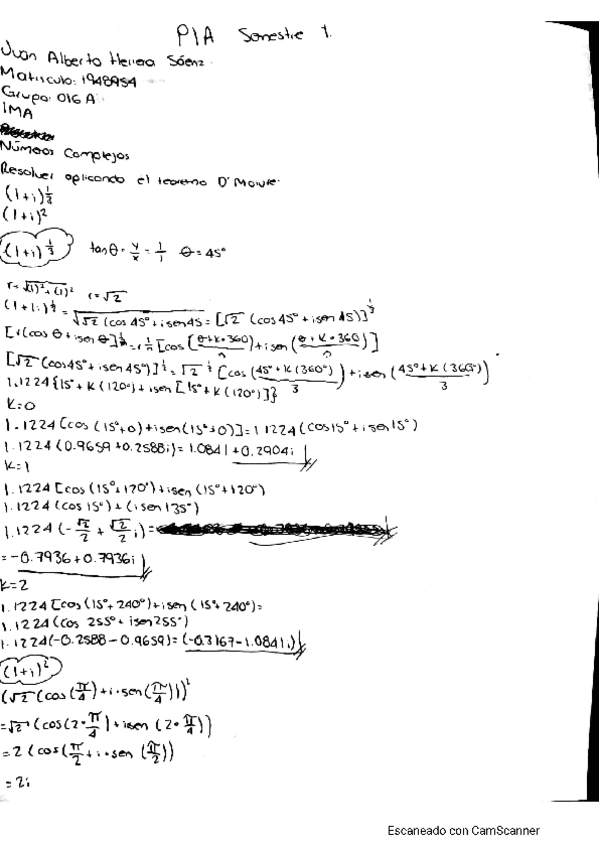 PIA Semestre 1.
Juan Alberto Herrera Sáenz
Matricula: 1948954
Grupo: 016 A
IMA
Números Complejos
Resolver aplicando el teorema D'Moivre.
(1+i)^{1/3}
(1+i)^2
(1+i)^{1/3} tanθ = y/x = 1/1 θ = 45°
r=√(1)²+(1)² r=√2
(1+1i)^{1/3} = √√2 (cos 45° + i sen 45 = [√2 (cos 45° + i sen 45)]^{1/3}
[r(cos θ + i sen θ]^{1/n} = r^{1/n} [cos (θ+K·360/n) + i sen (θ+K·360/n)]
[√2 (cos45° + i sen 45°)]^{1/3} = √2^{1/3} [cos (45°+K(360°)/3) + i sen (45°+K(360°)/3)
1.1224 {15° + K(120°) + i sen [15° + K(120°)]}
K=0
1.1224 [cos (15°+0) + i sen (15°+0)] = 1.1224 (cos 15° + i sen 15°)
1.1224 (0.9659 + 0.2588i) = 1.0841 + 0.2904i
K=1
1.1224 [cos (15°+120°) + i sen (15°+120°)
1.1224 (cos 15°) + (i sen 135°)
1.1224 (-√2/2 + √2/2 i) =
= -0.7936 + 0.7936i
K=2
1.1224 [cos (15°+240°) + i sen (15°+240°) =
1.1224 (cos 255° + i sen 255°)
1.1224 (-0.2588 - 0.9659) = (-0.3167 - 1.0841i)
(1+i)²
(√2 (cos (π/4) + i · sen (π/4)))²
= √2 (cos (2·π/4) + i sen (2·π/4))
= 2 (cos (π/2 + i · sen (π/2))
= 2i
Escaneado con CamScanner